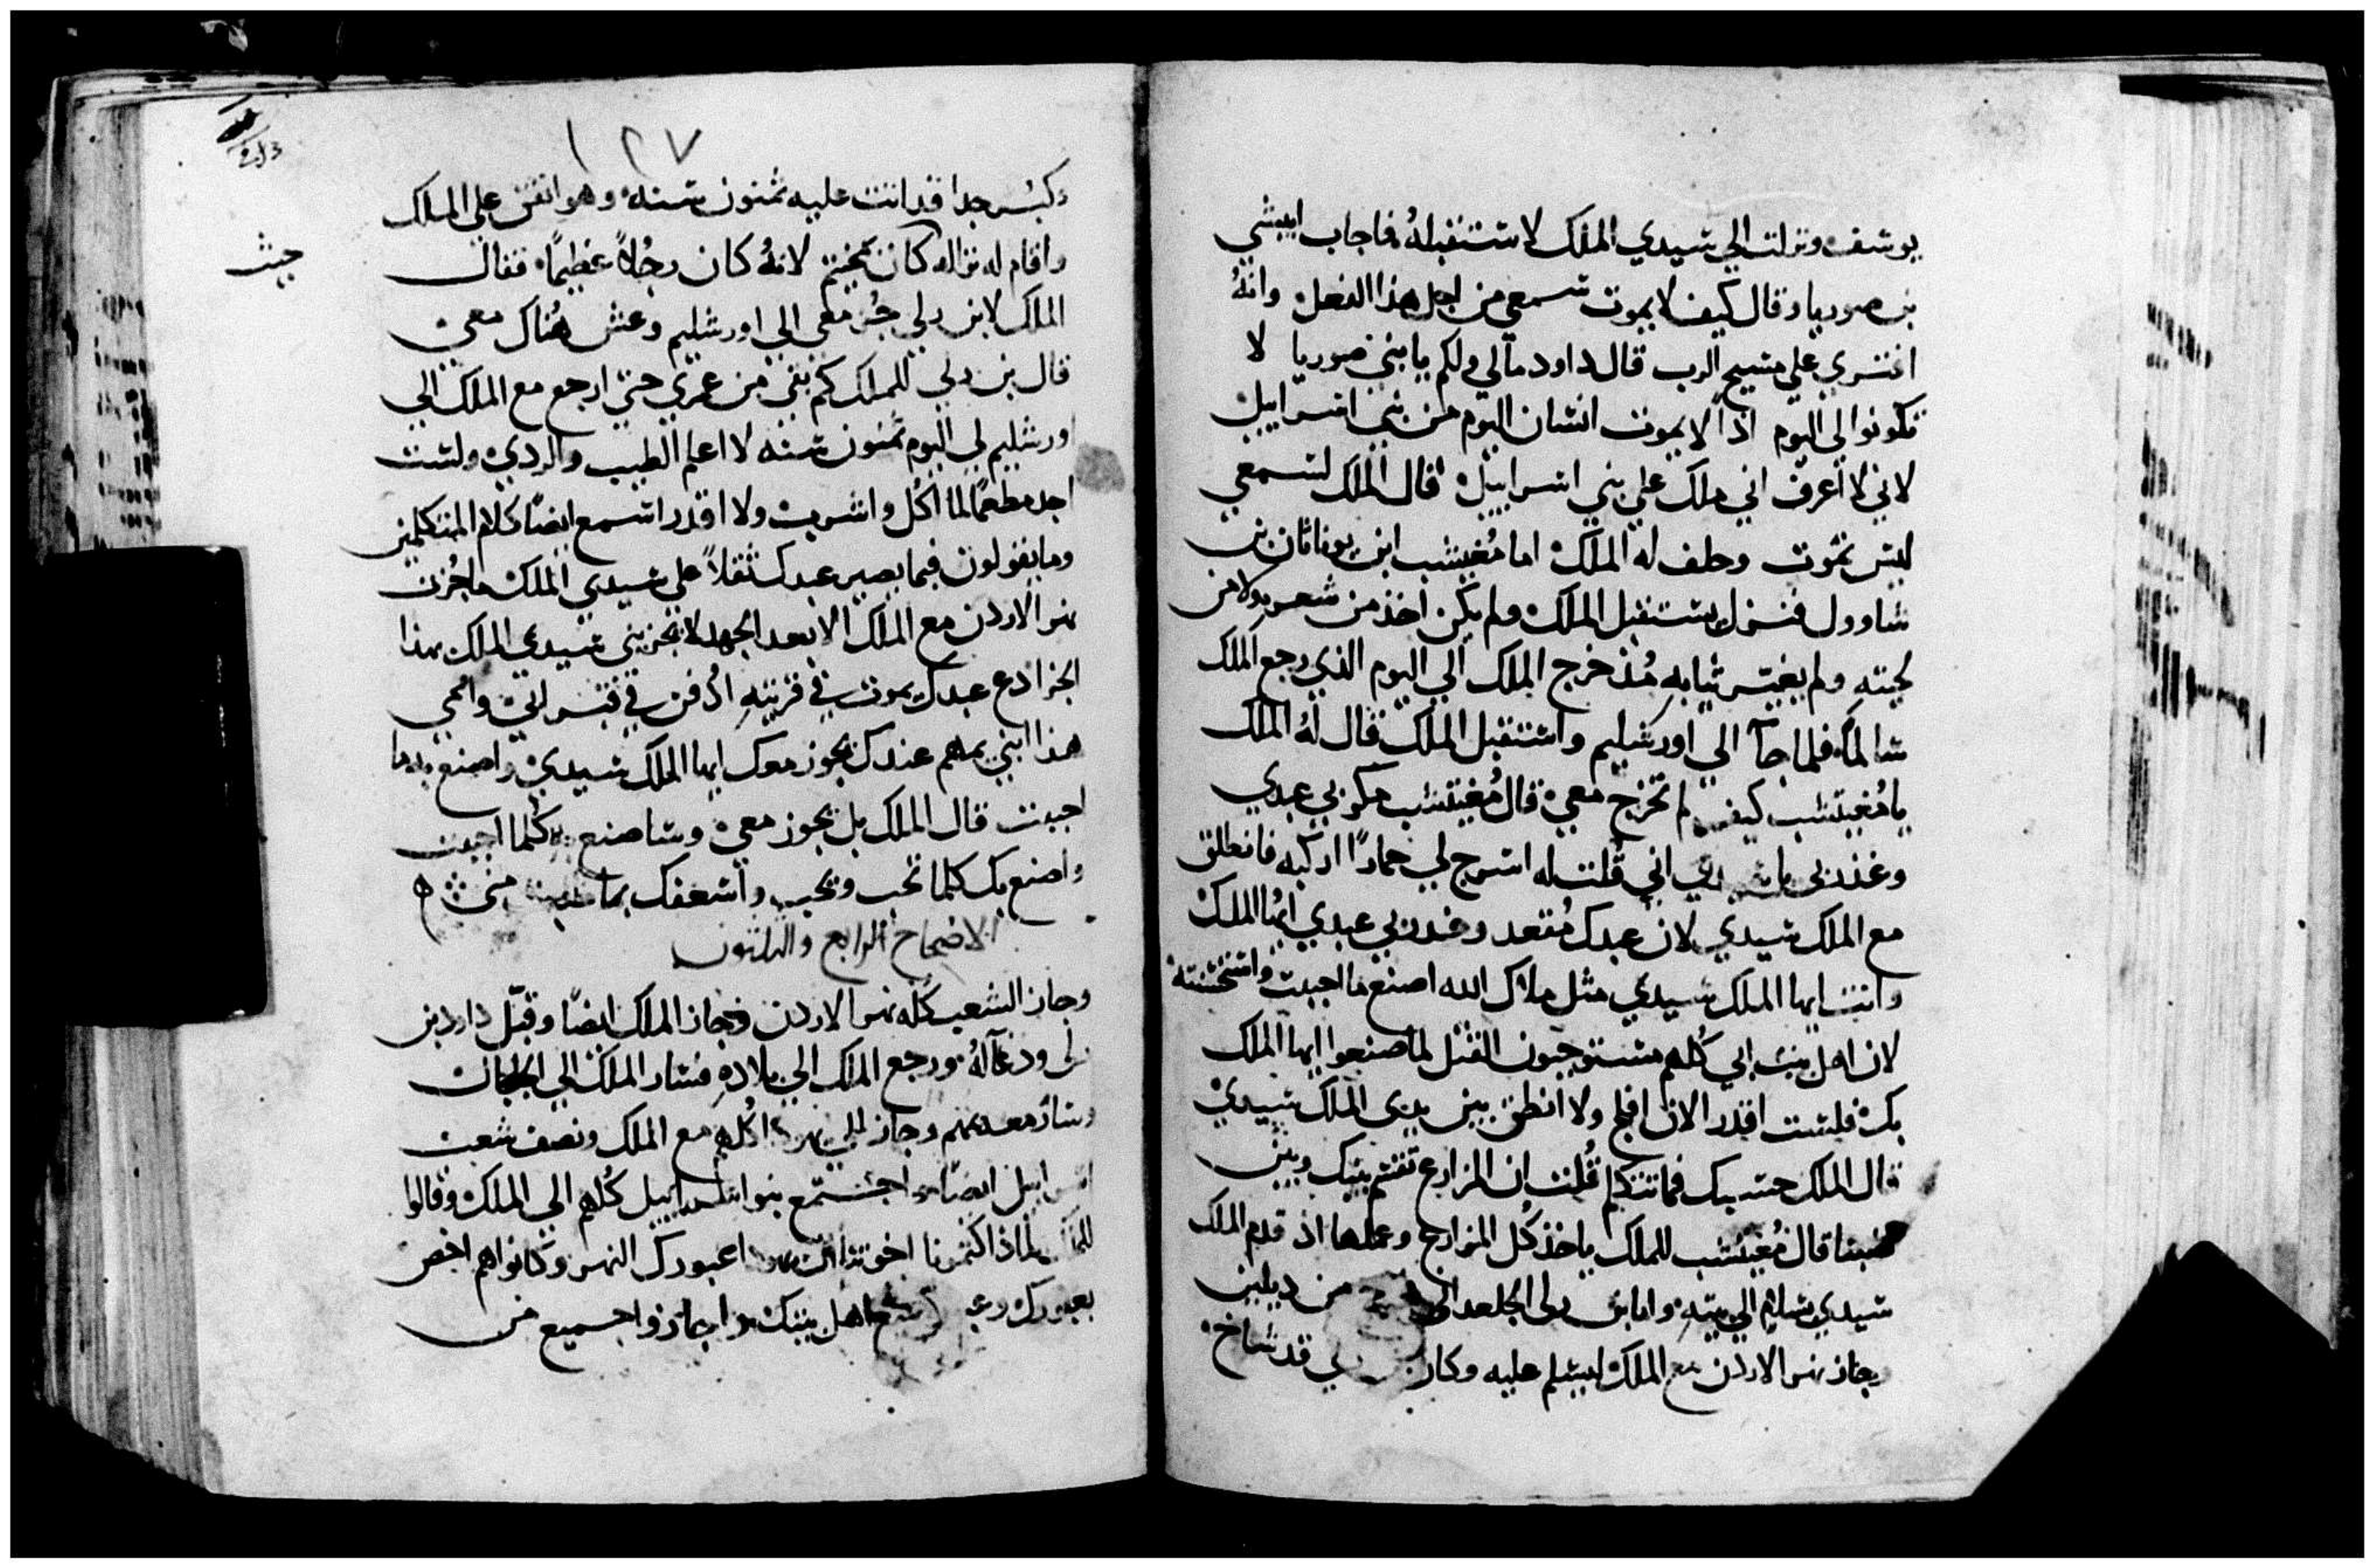 يوسف ونزلت الي سيدي الملك لاستقبله فاجاب ابيشي
بن صوريا وقال كيف لا يموت سمعي من اجل هذا الفعل وانهُ
افتري علي مسيح الرب قال داود مالي ولكم يا بني صوريا لا
تكونوا لي اليوم اذاً لا يموت انسان اليوم من بني اسراييل
لاني لا أعرف اني ملك علي بني اسراييل قال الملك لسمعي
ليس تموت وحلف له الملك اما مُفيبشب ابن يوناثان بن
شاوول فنزل يستقبل الملك ولم يكن اخذ من شعره ولا من
لحيته ولم يغير ثيابه مُذ خرج الملك الي اليوم الذي رجع الملك
سالماً فلما جآ الي اورشليم واستقبل الملك قال لهُ الملك
يا مُفيتشب كيف لم تخرج معي قال مُفيتشب مكر بي عبدي
وغدر بي يا سيدي اني قُلت له اسرج لي حماراً اركبه فانطلق
مع الملك سيدي لان عبدك مُقعد وغدر بي عبدي ايُها الملك
وانت ايها الملك سيدي مثل ملاك الله اصنع ما احببت واستحسنته
لان اهل بيت ابي كُلهم مستوجبون القتل لما صنعوا ايها الملك
بك فلست اقدر الان افلح ولا انطق بين يدي الملك سيدي
قال الملك حسبك فما تتكلم قُلت ان المزارع تقسم بينك وبين
صيبا قال مُفيتشب للملك ياخذ كُل المزارع وعملها اذ قدم الملك
سيدي بسلام الي بيته واما بن رلي الجلعداني من ديلين
وجاز نهر الاردن مع الملك ليسلم عليه وكان رلي قد شاخ
١٢٧
وكبُر جدا قد اتت عليه ثمنون سنه وهو انفق علي الملك
جيش
واقام له نزاله كان بمحنيم لانهُ كان رجُلاً عظيماً فقال
الملك لابن رلي جُز معي الي اورشليم وعش هُناك معي
قال بن رلي للملك كم بقي من عمري حتي ارجع مع الملك الي
اورشليم لي اليوم ثمنون سنه لا اعلم الطيب والردي ولست
اجد مطعماً لما اكُل واشرب ولا اقدر اسمع ايضاً كلام المتكلمين
وما يقولون فيما يصير عبدك ثقلاً علي سيدي الملك ما جُزت
نهر الاردن مع الملك الا بعد الجهد لا تجزيني سيدي الملك بهذا
الجزا دع عبدك يموت في قريتهِ ادُفن في قبر ابي وامُي
هذا ابني بمهم عندك يجوز معك ايها الملك سيدي واصنع به ما
احببت قال الملك بل يجوز معي وساصنع به كُلما احببت
واصنع بك كلما تحب وتحب واسعفك بما مني
الاصحاح الرابع والثلثون
وجاز الشعب كُله نهر الاردن وجاز الملك ايضاً وقبّل داردبن
رلي ودعآ لهُ ورجع الملك الي بلادهِ فسار الملك الي الجلجال
وسار معه بمهم وجاز ال يهودا كُلهم مع الملك ونصف شعب
اسراييل ايضاً واجتمع بنو اسراييل كُلهم الي الملك وقالوا
للملك لماذا كتمونا اخوتنا ال يهودا عبورك النهر وكانوا هم اخص
بعبورك اهل بيتك واجازوا جميع من